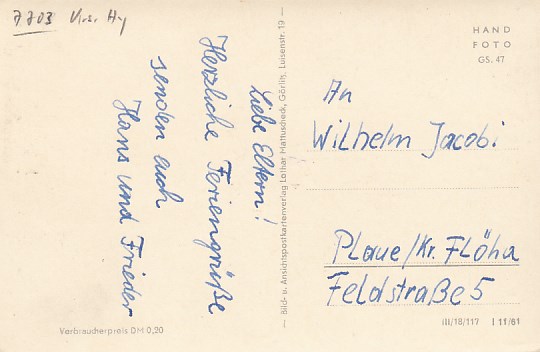 7703
HAND
FOTO
GS. 47
Liebe Eltern!
Herzliche Feriengrüße
senden euch
Hans und Frieder
Bild- u. Ansichtspostkartenverlag Lothar Hattuscheck, Görlitz, Luisenstr. 19
An
Wilhelm Jacobi
Plaue/Kr. Flöha
Feldstraße 5
Verbraucherpreis DM 0,20
III/18/117 I 11/61